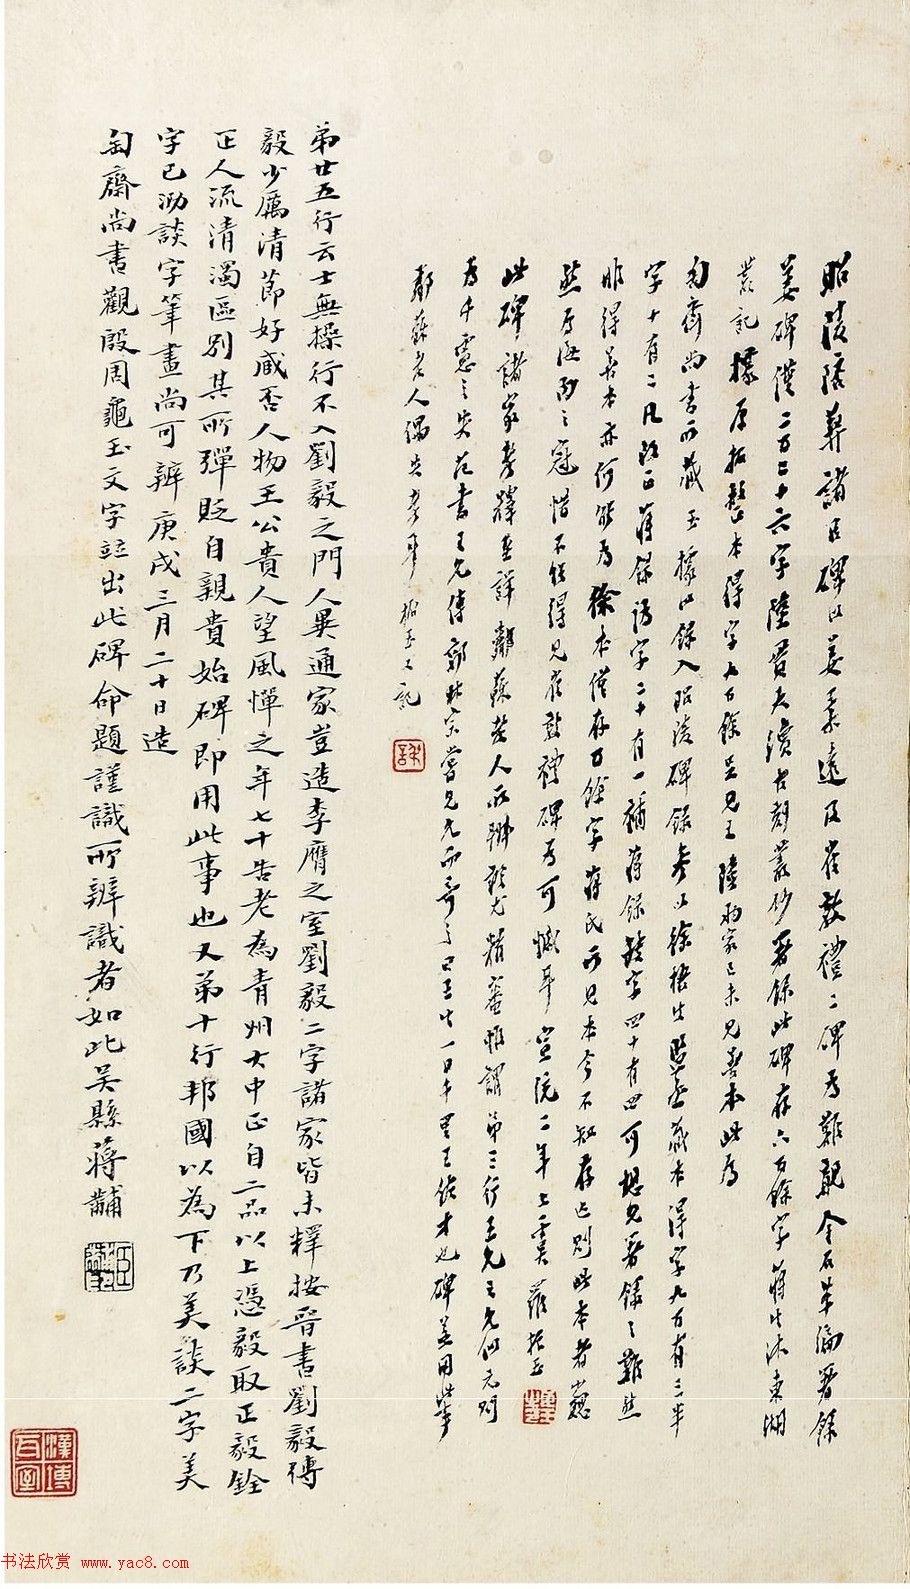 昭陵陪葬諸臣碑以姜柔遠及崔敦禮二碑為難覯金石萃編著錄
姜碑僅二百三十六字陸貫夫續古刻叢鈔著錄此碑存六百餘字蔣生沐東湖
叢記據原拓整本得字七百餘是兄王陸兩家已未見善本此為
匋齋尚書所藏玉據以錄入昭陵碑錄參以徐 藏本得字九百有三半
字十有二凡改正蔣錄譌字二十有一補蔣錄缺字四十有四可想見著錄之難然
非得善本亦何能為徐本僅存百餘字蔣氏所見本今不知存亡則此本者巍
然為海內之冠惜不能得見崔敦禮碑為可憾耳宣統二年七 羅振玉
此碑諸家考釋至詳鄰蘇老人所 尤精審惟謂第三行王允之允似元則
為千慮之失范書王允傳郭林宗嘗見允而奇之曰王生一日千里王佐才也碑蓋用此事
鄰蘇老人偶失考耳 振玉又記
弟廿五行云士無操行不入劉毅之門人異通家豈造李膺之室劉毅二字諸家皆未釋按晉書劉毅傳
毅少厲清節好臧否人物王公貴人望風憚之年七十告老為青州大中正自二品以上憑毅取正毅銓
正人流清濁區別其所彈貶自親貴始碑即用此事也又弟十行邦國以為下乃美談二字美
字已泐談字筆畫尚可辨庚戌三月二十日造
匋齋尚書觀殷周龜玉文字竝出此碑命題謹識所辨識者如此吳縣蔣黼
书法欣赏 www.yac8.com